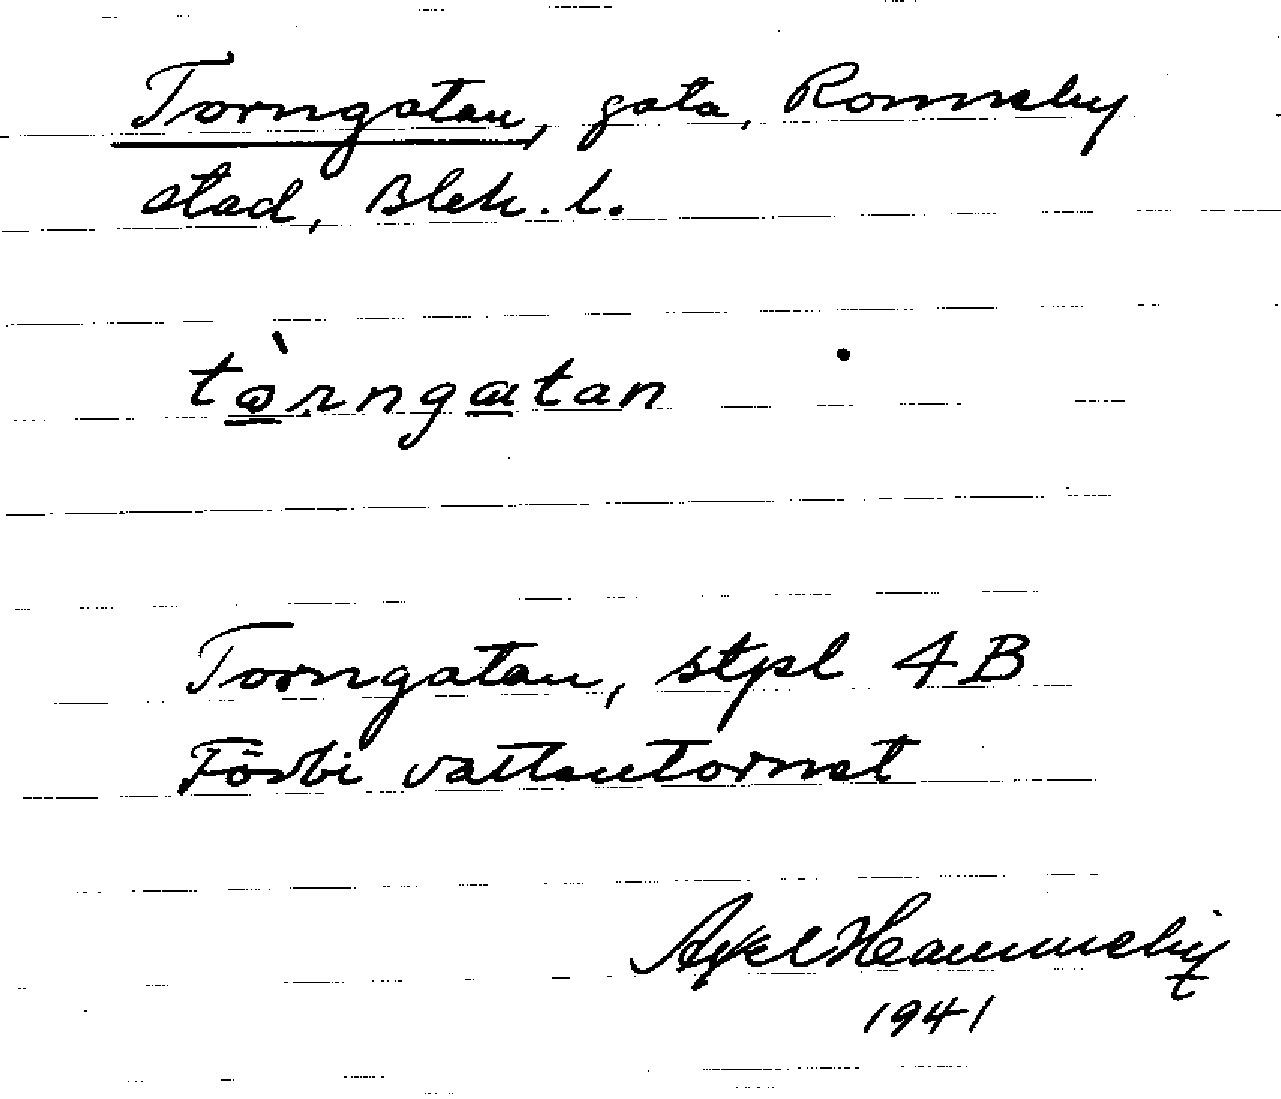 Torngatan, gata, Ronneby
stad, Blek. l.
tòrngatan
Torngatan, stpl 4B
Förbi vattentornet
Axel
1941